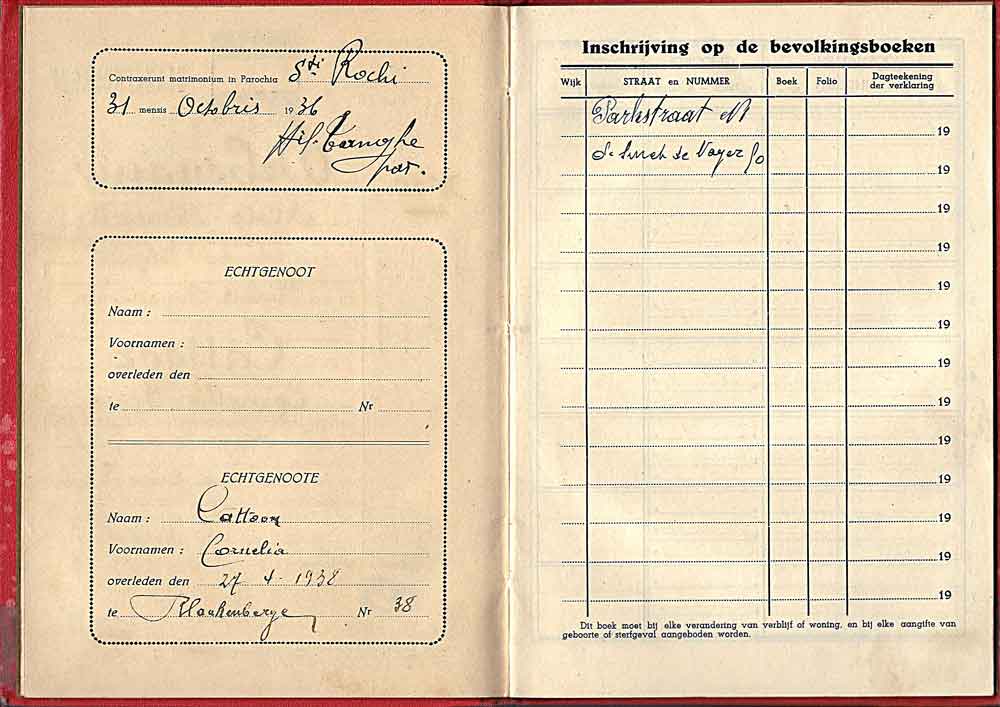 Contraxerunt matrimonium in Parochia Sti Rochi
31 mensis Octobris 1936
Hil.
past.
ECHTGENOOT
Naam :
Voornamen :
overleden den
te Nr
ECHTGENOOTE
Naam : Cattoor
Voornamen : Cornelia
overleden den 27 4 - 1938
te Blankenberge Nr 38
Inschrijving op de bevolkingsboeken
Wijk STRAAT en NUMMER Boek Folio Dagteekening der verklaring
Parkstraat 19
de 19
19
19
19
19
19
19
19
19
19
19
19
Dit boek moet bij elke verandering van verblijf of woning, en bij elke aangifte van
geboorte of sterfgeval aangeboden worden.